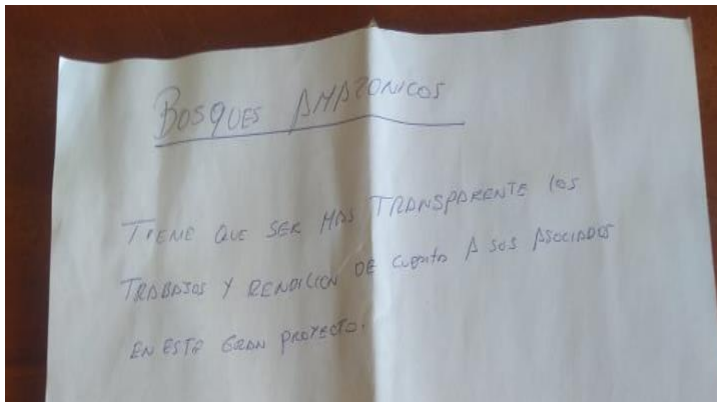 BOSQUES AMAZONICOS
TIENE QUE SER MAS TRANSPARENTE LOS
TRABAJOS Y RENDICION DE CUENTA A SUS ASOCIADOS
EN ESTE GRAN PROYECTO.